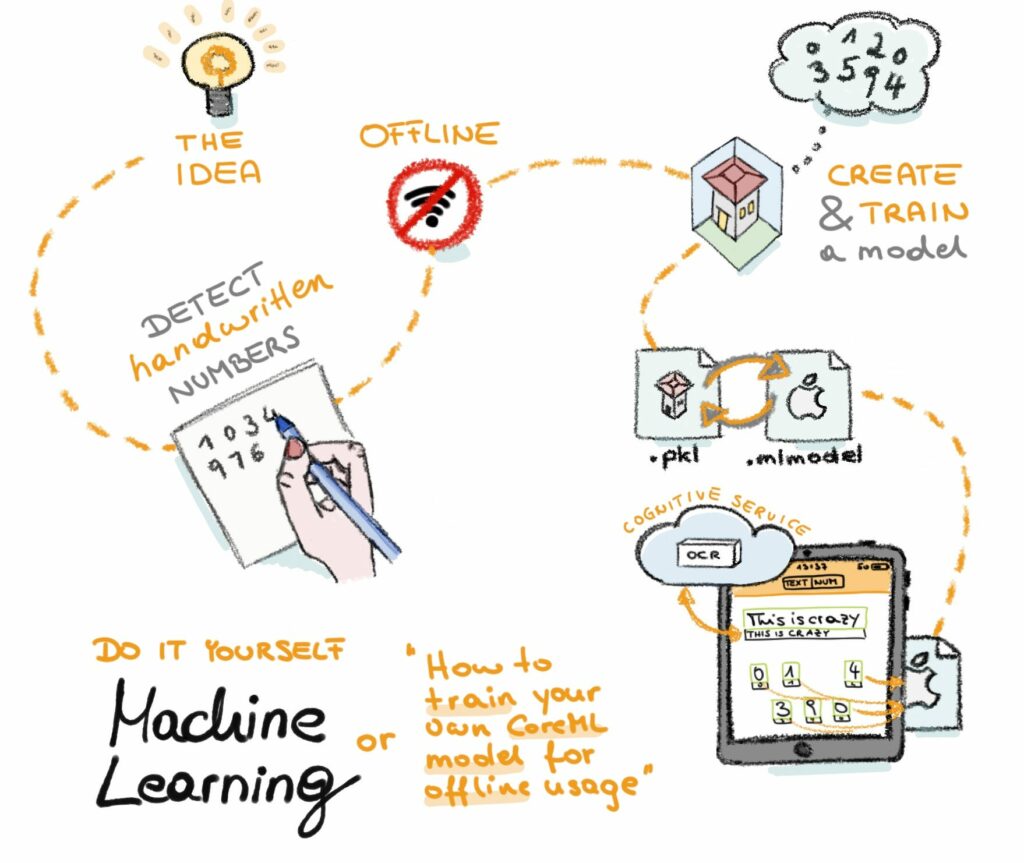 THE
IDEA
OFFLINE
0 1 2 0
3 5 9 4
CREATE
& TRAIN
a model
DETECT
handwritten
NUMBERS
1 0 3 4
9 7 6
.pkl
.mlmodel
COGNITIVE SERVICE
OCR
13:37
50
TEXT NUM
This is crazy
THIS IS CRAZY
0 1 4
0 1 4
3 9 0
3 9 0
DO IT YOURSELF
Machine
Learning
or
"How to
train your
own CoreML
model for
offline usage"